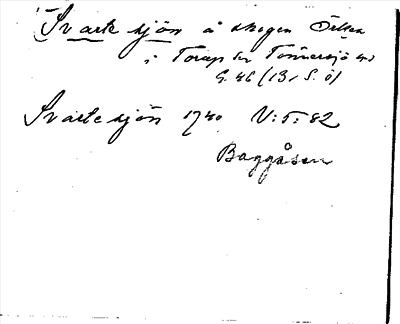 Svarte sjön å skogen Örken
i Torup sn Tönnersjö hd
G. 46 (13, S. ö)
Svarte sjön 1740 V:5:82
Baggåsen